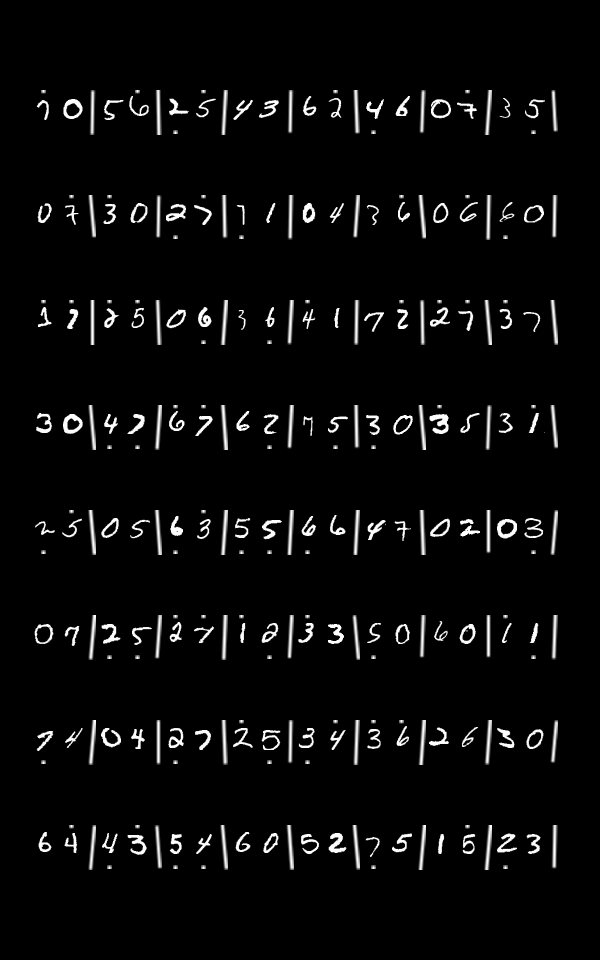 7̇ 0 | 5 6̇ | 2̣ 5̇ | 4 3 | 6 2̇ | 4̣ 6 | 0 7̇ | 3 5̣ |
0 7̇ | 3̇ 0 | 2̣ 7̇ | 7̣ 1 | 0 4 | 3 6̇ | 0 6̇ | 6̣ 0 |
1̇ 7̇ | 2̇ 5̇ | 0 6̣ | 3 6̣ | 4̇ 1 | 7 2̇ | 2̇ 7̇ | 3̇ 7 |
3 0 | 4̣ 7̣ | 6̇ 7̇ | 6 2̣ | 7 5̣ | 3̣ 0 | 3̇ 5 | 3 1̇ |
2̣ 5̇ | 0 5 | 6̣ 3̇ | 5̣ 5̣ | 6̣ 6 | 4 7 | 0 2 | 0 3̣ |
0 7 | 2̣ 5̣ | 2̇ 7̇ | 1̇ 2̣ | 3̇ 3 | 5̣ 0 | 6 0 | 1̇ 1̣ |
7̣ 4 | 0 4 | 2̣ 7 | 2 5̣ | 3̣ 4̇ | 3̇ 6̇ | 2 6 | 3 0 |
6 4̇ | 4̣ 3̇ | 5̣ 4̣ | 6 0 | 5 2 | 7̣ 5 | 1 5̇ | 2̣ 3 |